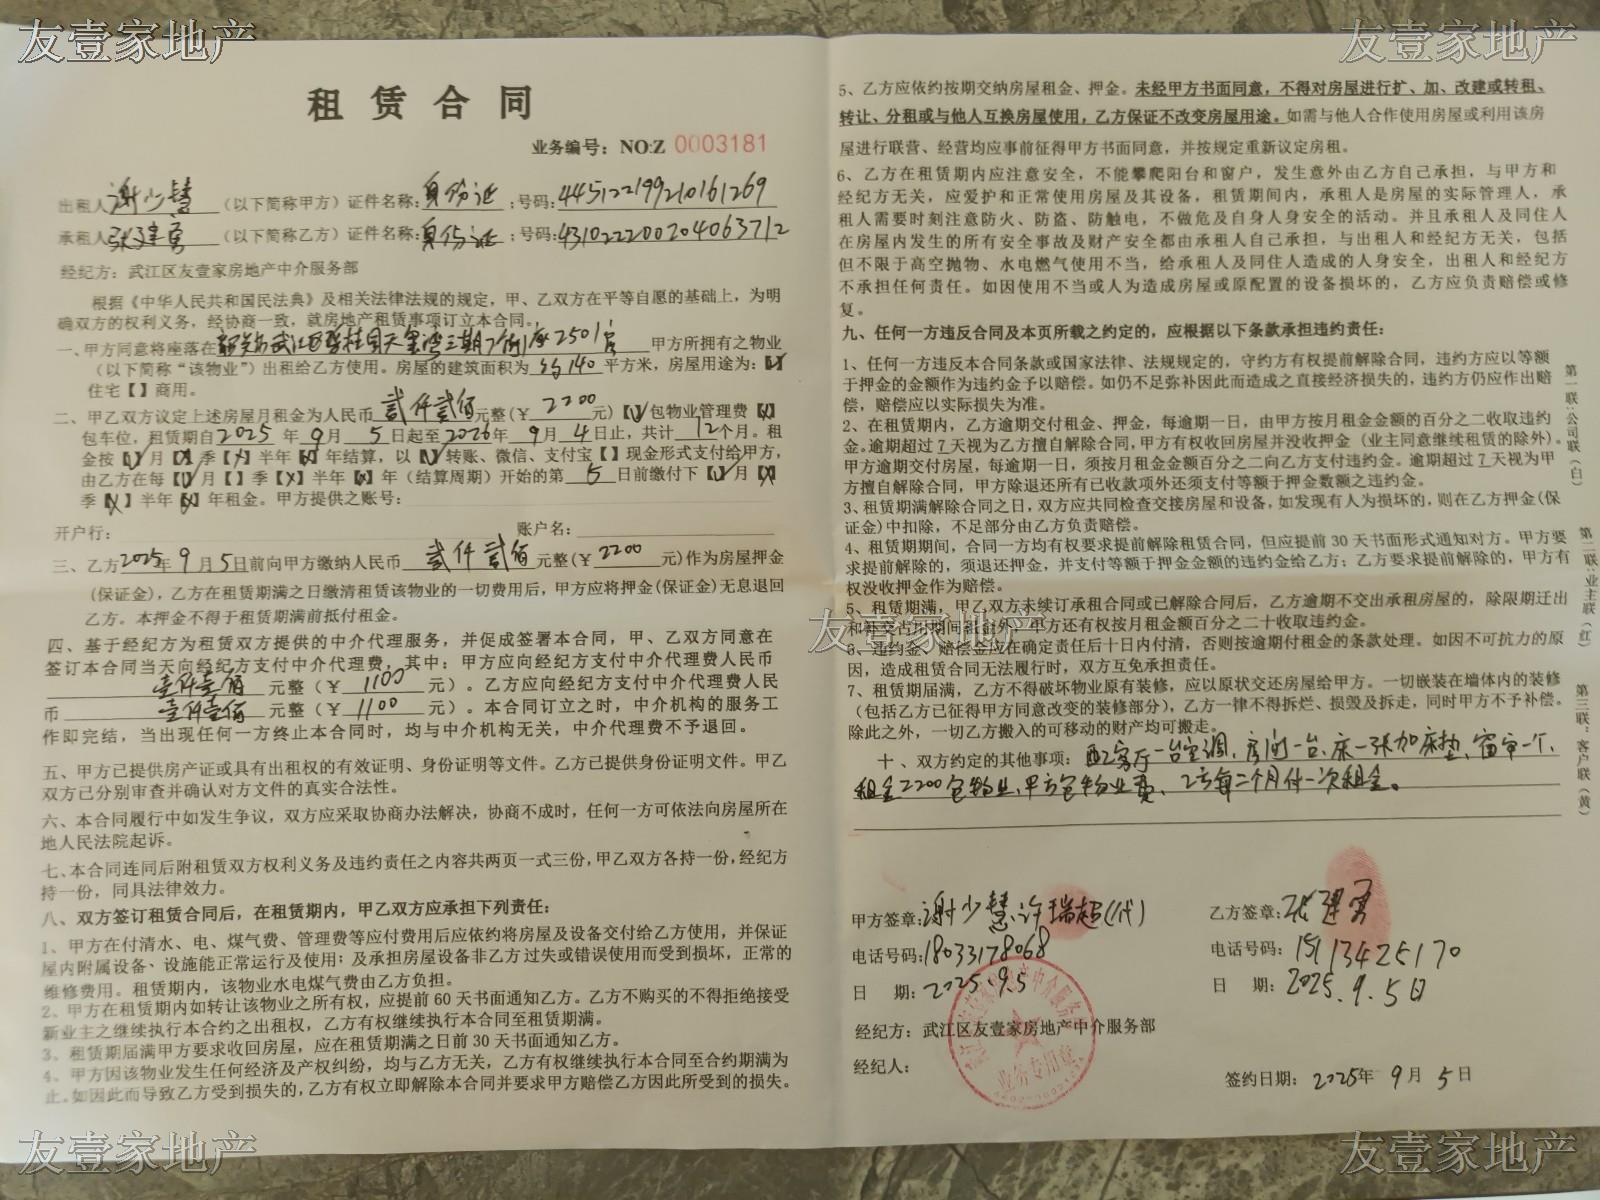 友壹家地产
友壹家地产
租赁合同
业务编号：NO:Z 0003181
出租人谢少慧（以下简称甲方）证件名称：身份证；号码：445122199210161269
承租人张建勇（以下简称乙方）证件名称：身份证；号码：431022200204063712
经纪方：武江区友壹家房地产中介服务部
根据《中华人民共和国民法典》及相关法律法规的规定，甲、乙双方在平等自愿的基础上，为明
确双方的权利义务，经协商一致，就房地产租赁事项订立本合同。
一、甲方同意将座落在韶关市武江区碧桂园天玺湾三期7街1座2501房 甲方所拥有之物业
（以下简称“该物业”）出租给乙方使用。房屋的建筑面积为 约140 平方米，房屋用途为：【√】
住宅【 】商用。
二、甲乙双方议定上述房屋月租金为人民币 贰仟贰佰元整（￥ 2200 元）【√】包物业管理费【X】
包车位，租赁期自2025 年 9月 5日起至2026年 9月 4日止，共计 12个月。租
金按【√】月【X】季【X】半年【X】年结算，以【√】转账、微信、支付宝【 】现金形式支付给甲方，
由乙方在每【√】月【 】季【X】半年【X】年（结算周期）开始的第 5 日前缴付下【√】月【X】
季【X】半年【X】年租金。甲方提供之账号：
开户行： 账户名：
三、乙方2025年 9 月 5日前向甲方缴纳人民币 贰仟贰佰 元整（￥2200 元)作为房屋押金
(保证金)，乙方在租赁期满之日缴清租赁该物业的一切费用后，甲方应将押金(保证金)无息退回
乙方。本押金不得于租赁期满前抵付租金。
四、基于经纪方为租赁双方提供的中介代理服务，并促成签署本合同，甲、乙双方同意在
签订本合同当天向经纪方支付中介代理费，其中：甲方应向经纪方支付中介代理费人民币
壹仟壹佰 元整（￥ 1100 元）。乙方应向经纪方支付中介代理费人民
币 壹仟壹佰 元整（￥ 1100 元）。本合同订立之时，中介机构的服务工
作即完结，当出现任何一方终止本合同时，均与中介机构无关，中介代理费不予退回。
五、甲方已提供房产证或具有出租权的有效证明、身份证明等文件。乙方已提供身份证明文件。甲乙
双方已分别审查并确认对方文件的真实合法性。
六、本合同履行中如发生争议，双方应采取协商办法解决，协商不成时，任何一方可依法向房屋所在
地人民法院起诉。
七、本合同连同后附租赁双方权利义务及违约责任之内容共两页一式三份，甲乙双方各持一份，经纪方
持一份，同具法律效力。
八、双方签订租赁合同后，在租赁期内，甲乙双方应承担下列责任：
1、甲方在付清水、电、煤气费、管理费等应付费用后应依约将房屋及设备交付给乙方使用，并保证
屋内附属设备、设施能正常运行及使用；及承担房屋设备非乙方过失或错误使用而受到损坏，正常的
维修费用。租赁期内，该物业水电煤气费由乙方负担。
2、甲方在租赁期内如转让该物业之所有权，应提前60天书面通知乙方。乙方不购买的不得拒绝接受
新业主之继续执行本合约之出租权，乙方有权继续执行本合同至租赁期满。
3、租赁期届满甲方要求收回房屋，应在租赁期满之日前30天书面通知乙方。
4、甲方因该物业发生任何经济及产权纠纷，均与乙方无关，乙方有权继续执行本合同至合约期满为
止。如因此而导致乙方受到损失的，乙方有权立即解除本合同并要求甲方赔偿乙方因此所受到的损失。
5、乙方应依约按期交纳房屋租金、押金。未经甲方书面同意，不得对房屋进行扩、加、改建或转租、
转让、分租或与他人互换房屋使用，乙方保证不改变房屋用途。如需与他人合作使用房屋或利用该房
屋进行联营、经营均应事前征得甲方书面同意，并按规定重新议定房租。
6、乙方在租赁期内应注意安全，不能攀爬阳台和窗户，发生意外由乙方自己承担，与甲方和
经纪方无关，应爱护和正常使用房屋及其设备，租赁期间内，承租人是房屋的实际管理人，承
租人需要时刻注意防火、防盗、防触电，不做危及自身人身安全的活动。并且承租人及同住人
在房屋内发生的所有安全事故及财产安全都由承租人自己承担，与出租人和经纪方无关，包括
但不限于高空抛物、水电燃气使用不当，给承租人及同住人造成的人身安全，出租人和经纪方
不承担任何责任。如因使用不当或人为造成房屋或原配置的设备损坏的，乙方应负责赔偿或修
复。
九、任何一方违反合同及本页所载之约定的，应根据以下条款承担违约责任：
1、任何一方违反本合同条款或国家法律、法规规定的，守约方有权提前解除合同，违约方应以等额
于押金的金额作为违约金予以赔偿。如仍不足弥补因此而造成之直接经济损失的，违约方仍应作出赔
偿，赔偿应以实际损失为准。
2、在租赁期内，乙方逾期交付租金、押金，每逾期一日，由甲方按月租金金额的百分之二收取违约
金。逾期超过7天视为乙方擅自解除合同，甲方有权收回房屋并没收押金（业主同意继续租赁的除外）。
甲方逾期交付房屋，每逾期一日，须按月租金金额百分之二向乙方支付违约金。逾期超过7天视为甲
方擅自解除合同，甲方除退还所有已收款项外还须支付等额于押金数额之违约金。
3、租赁期满解除合同之日，双方应共同检查交接房屋和设备，如发现有人为损坏的，则在乙方押金(保
证金)中扣除，不足部分由乙方负责赔偿。
4、租赁期期间，合同一方均有权要求提前解除租赁合同，但应提前30天书面形式通知对方。甲方要
求提前解除的，须退还押金，并支付等额于押金金额的违约金给乙方；乙方要求提前解除的，甲方有
权没收押金作为赔偿。
5、租赁期满，甲乙双方未续订承租合同或已解除合同后，乙方逾期不交出承租房屋的，除限期迁出
和补交占用期间租金外，甲方还有权按月租金额百分之二十收取违约金。
友壹家地产
6、违约金、赔偿金应在确定责任后十日内付清，否则按逾期付租金的条款处理。如因不可抗力的原
因，造成租赁合同无法履行时，双方互免承担责任。
7、租赁期届满，乙方不得破坏物业原有装修，应以原状交还房屋给甲方。一切嵌装在墙体内的装修
（包括乙方已征得甲方同意改变的装修部分），乙方一律不得拆烂、损毁及拆走，同时甲方不予补偿。
除此之外，一切乙方搬入的可移动的财产均可搬走。
十、双方约定的其他事项：配客厅一台空调、房间一台、床一张加床垫、窗帘一个、
租金2200包物业，甲方包物业费、乙方每二个月付一次租金。
第一联：公司联（白）
第二联：业主联（红）
第三联：客户联（黄）
甲方签章：谢少慧 许瑞超(代)
电话号码：18033178068
日 期：2025.9.5
乙方签章：张建勇
电话号码：15113425170
日 期：2025.9.5日
经纪方：武江区友壹家房地产中介服务部
经纪人：
业务专用章
签约日期：2025年 9月 5日
友壹家地产
友壹家地产